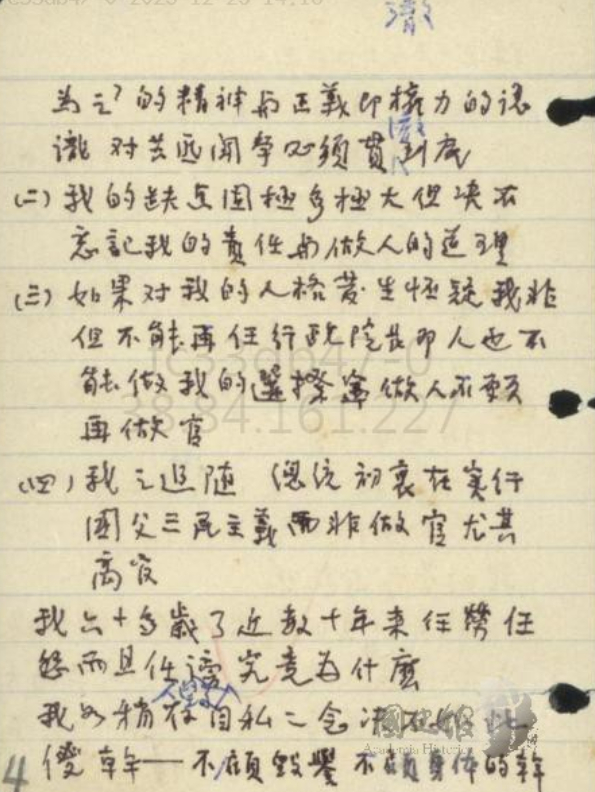 澈
為之?的精神與正義即權力的認
識对共匪鬥爭必須貫澈到底
(二)我的缺点固極多極大但决不
忘記我的責任與做人的道理
(三)如果对我的人格发生怀疑我非
但不能再任行政院長即人也不
能做我的選擇寧做人不願
再做官
(四)我之追随 總統初衷在实行
國父三民主義而非做官尤其
高官
我六十多歲了近数十年来任勞任
怨而且任謗究竟為什麼
我如稍存自私之念决不如此
傻幹——不顧毀譽不顧身体的幹
國史館
Academia Historica
fc33db47-0
38.34.161.227
4